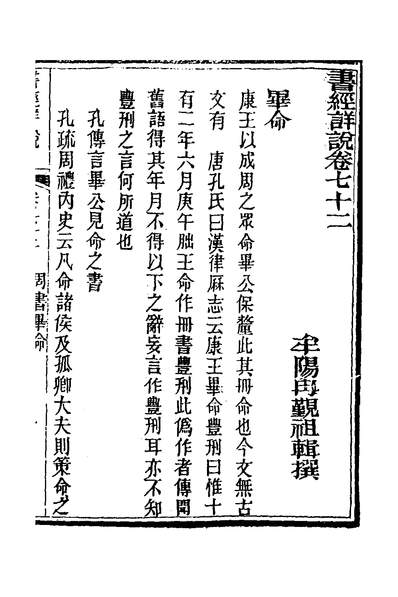 書經詳說卷七十二
牟陽冉覲祖輯撰
畢命
康王以成周之眾命畢公保釐此其冊命也今文無古
文有　唐孔氏曰漢律厤志云康王畢命豐刑曰惟十
有二年六月庚午朏王命作冊書豐刑此偽作者傳聞
舊語得其年月不得以下之辭妄言作豐刑耳亦不知
豐刑之言何所道也
孔傳言畢公見命之書
孔疏周禮內史云凡命諸侯及孤卿大夫則策命之
周書畢命